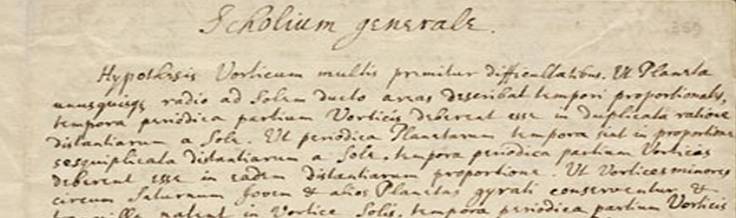 Scholium generale.
Hypothesis Vorticum multis premitur difficultatibus. Ut Planeta
unusquisqꝫ radio ad Solem ducto areas describat tempori proportionales,
tempora periodica partium Vorticis deberent esse in duplicata ratione
distantiarum a Sole. Ut periodica Planetarum tempora sint in proportione
sesquiplicata distantiarum a Sole, tempora periodica partium Vorticis
deberent esse in eadem distantiarum proportione. Ut Vortices minores
circum Saturnum Jovem & alios Planetas gyrati conserventur &
natent in Vortice Solis, tempora periodica partium Vorticis